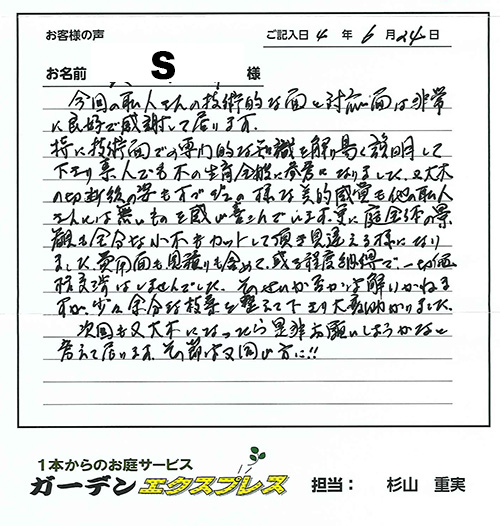 お客様の声
ご記入日 4 年 6 月 24 日
お名前 S 様
今回の職人さんの技術的な面と対応面は非常
に良好で感謝して居ります。
特に技術面での専門的な知識を解り易く説明して
下さり素人でも木の生育全般に参考になりました。又大木
の切断後の姿もオブジェの様な美的感覚も他の職人
さんには無いものを感じ喜んでいます。更に庭全体の景
観も余分な小木をカットして頂き見違える様になり
ました。費用面も見積りも含めて、或る程度納得で、一切価
格交渉はしませんでした。そのせいか否かは解りかねま
すが、少々余分な枝葉を整えて下さり大変助かりました。
次回も又大木になったら是非お願いしようかなと
考えて居ります。その節は又同じ方に!!
1本からのお庭サービス
ガーデンエクスプレス 担当: 杉山 重実